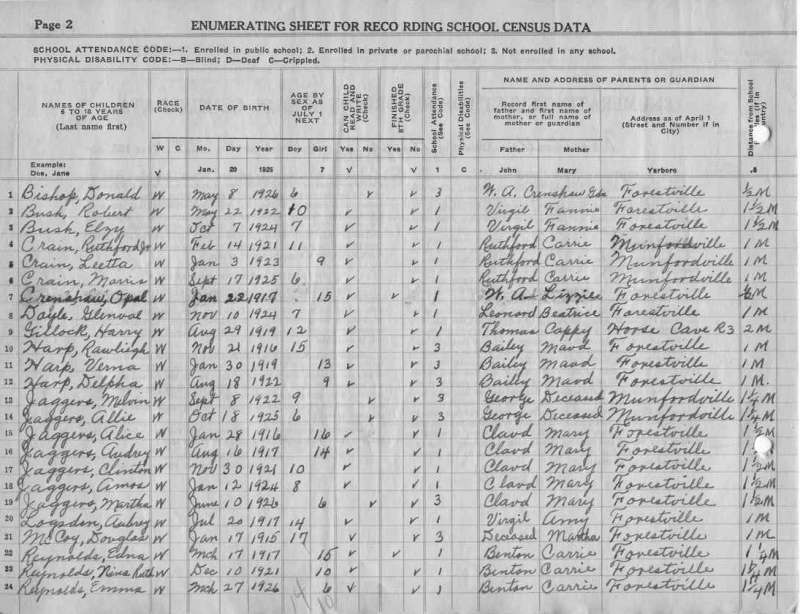 Page 2 ENUMERATING SHEET FOR RECO RDING SCHOOL CENSUS DATA
SCHOOL ATTENDANCE CODE:—1. Enrolled in public school; 2. Enrolled in private or parochial school; 3. Not enrolled in any school.
PHYSICAL DISABILITY CODE:—B—Blind; D—Deaf C—Crippled.
NAMES OF CHILDREN 6 TO 18 YEARS OF AGE (Last name first) RACE (Check) DATE OF BIRTH AGE BY SEX AS OF JULY 1 NEXT CAN CHILD READ AND WRITE (Check) FINISHED 8TH GRADE (Check) School Attendance (See Code) Physical Disabilities (See Code) NAME AND ADDRESS OF PARENTS OR GUARDIAN Distance from School
Record first name of father and first name of mother, or full name of mother or guardian Address as of April 1 (Street and Number if in City)
W C Mo. Day Year Boy Girl Yes No Yes No Father Mother
Example:
Doe, Jane V Jan. 20 1925 7 V 1 C John Mary Yarboro .8
1 Bishop, Donald W May 8 1926 6 v v 3 W. A. Crenshaw Gdn Forestville ½ M
2 Bush, Robert W May 22 1922 10 v v 1 Virgil Fannie Forestville 1½ M
3 Bush, Elzy W Oct 7 1924 7 v v 1 Virgil Fannie Forestville 1½ M
4 Crain, Ruthford Jr W Feb 14 1921 11 v v 1 Ruthford Carrie Munfordville 1 M
5 Crain, Leetta W Jan 3 1923 9 v v 1 Ruthford Carrie Munfordville 1 M
6 Crain, Morris W Sept 17 1925 6 v v 1 Ruthford Carrie Munfordville 1 M
7 Crenshaw, Opal W Jan 22 1917 15 v v 1 W. A. Lizzie Forestville ½ M
8 Doyle, Glenval W Nov 10 1924 7 v v 1 Leonard Beatrice Forestville 1 M
9 Gillock, Harry W Aug 29 1919 12 v v 1 Thomas Cappy Horse Cave R3 2 M
10 Harp, Rawliegh W Nov 21 1916 15 v v 3 Bailey Maud Forestville 1 M
11 Harp, Verna W Jan 30 1919 13 v v 3 Bailey Maud Forestville 1 M
12 Harp, Delpha W Aug 18 1922 9 v v 3 Bailey Maud Forestville 1 M.
13 Jaggers, Melvin W Sept 8 1922 9 v v 3 George Deceased Munfordville 1¼ M
14 Jaggers, Allie W Oct 18 1925 6 v v 3 George Deceased Munfordville 1¼ M
15 Jaggers, Alice W Jan 28 1916 16 v v 1 Claud Mary Forestville 1½ M
16 Jaggers, Audrey W Aug 16 1917 14 v v 1 Claud Mary Forestville 1 M
17 Jaggers, Clinton W Nov 30 1921 10 v v 1 Claud Mary Forestville 1½ M
18 Jaggers, Amos W Jan 12 1924 8 v v 1 Claud Mary Forestville 1½ M
19 Jaggers, Martha W June 10 1926 6 v v 3 Claud Mary Forestville 1½ M
20 Logsdon, Aubrey W Jul 20 1917 14 v v 1 Virgil Amy Forestville 1 M
21 McCoy, Douglas W Jan 17 1915 17 v v 3 Deceased Martha Forestville 1 M
22 Reynolds, Edna W Mch 17 1917 15 v v 1 Benton Carrie Forestville 1¼ M
23 Reynolds, Nina Ruth W Dec 10 1921 10 v v 1 Benton Carrie Forestville 1¼ M
24 Reynolds, Emma W Mch 27 1926 6 v v 1 Benton Carrie Forestville 1¼ M
14 10